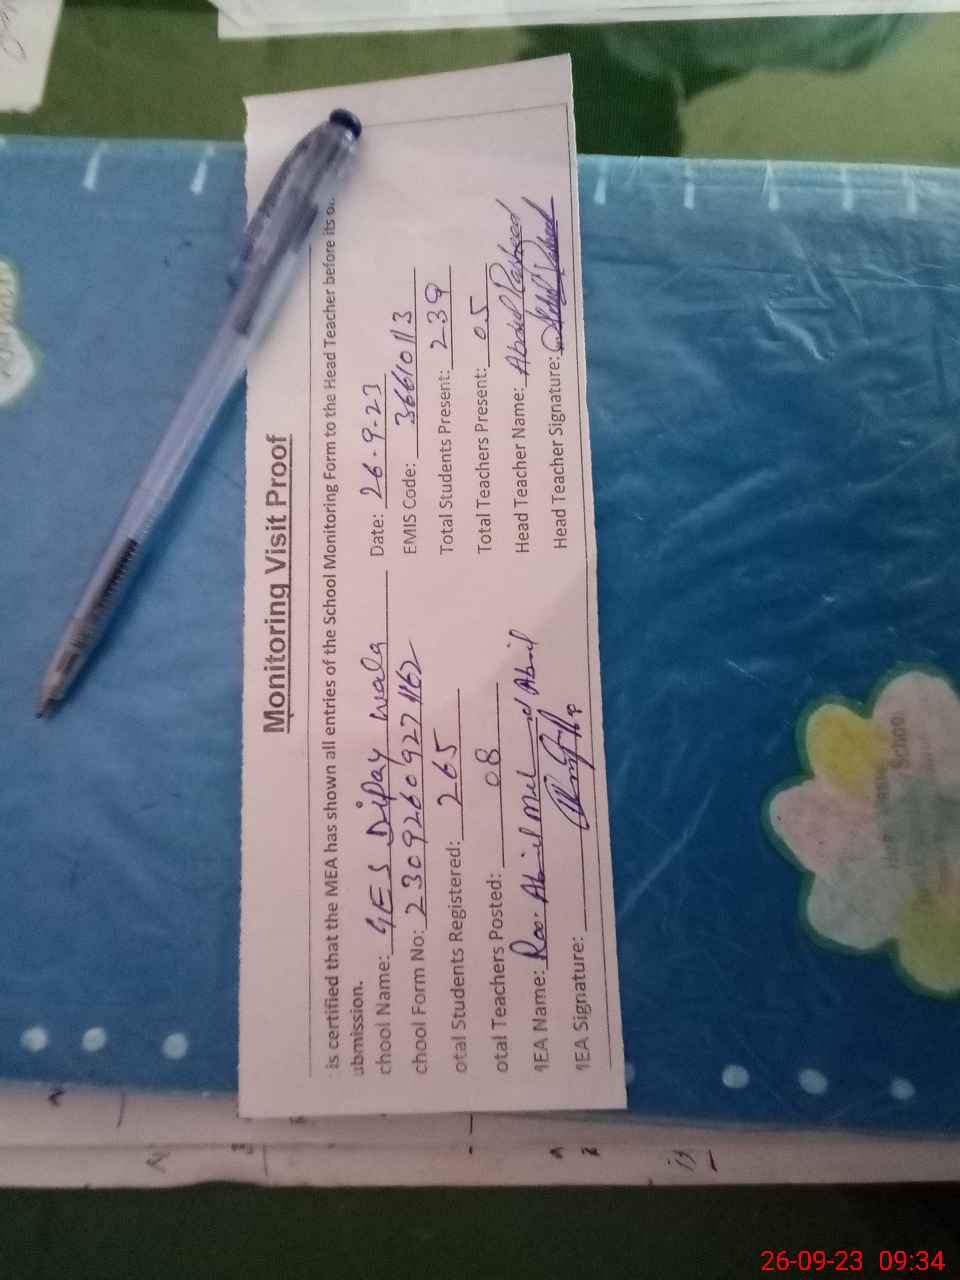 Monitoring Visit Proof
is certified that the MEA has shown all entries of the School Monitoring Form to the Head Teacher before its
ubmission.
chool Name: GES Dipay wala Date: 26-9-23
chool Form No: 23092609271162 EMIS Code: 36610113
otal Students Registered: 265 Total Students Present: 239
otal Teachers Posted: 08 Total Teachers Present: 05
MEA Name: Rao. Head Teacher Name: Abdul Rasheed
MEA Signature: Head Teacher Signature:
School
26-09-23 09:34